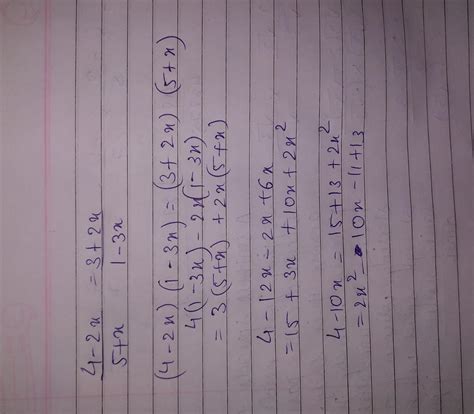 4-2x = 3+2x
5+x 1-3x
(4-2x) (1-3x) = (3+2x) (5+x)
4(1-3x) - 2x(1-3x)
= 3(5+x) + 2x(5+x)
4-12x-2x+6x
= 15 + 3x + 10x + 2x²
4-10x = 15+13+2x²
= 2x² - 10x - 11+13